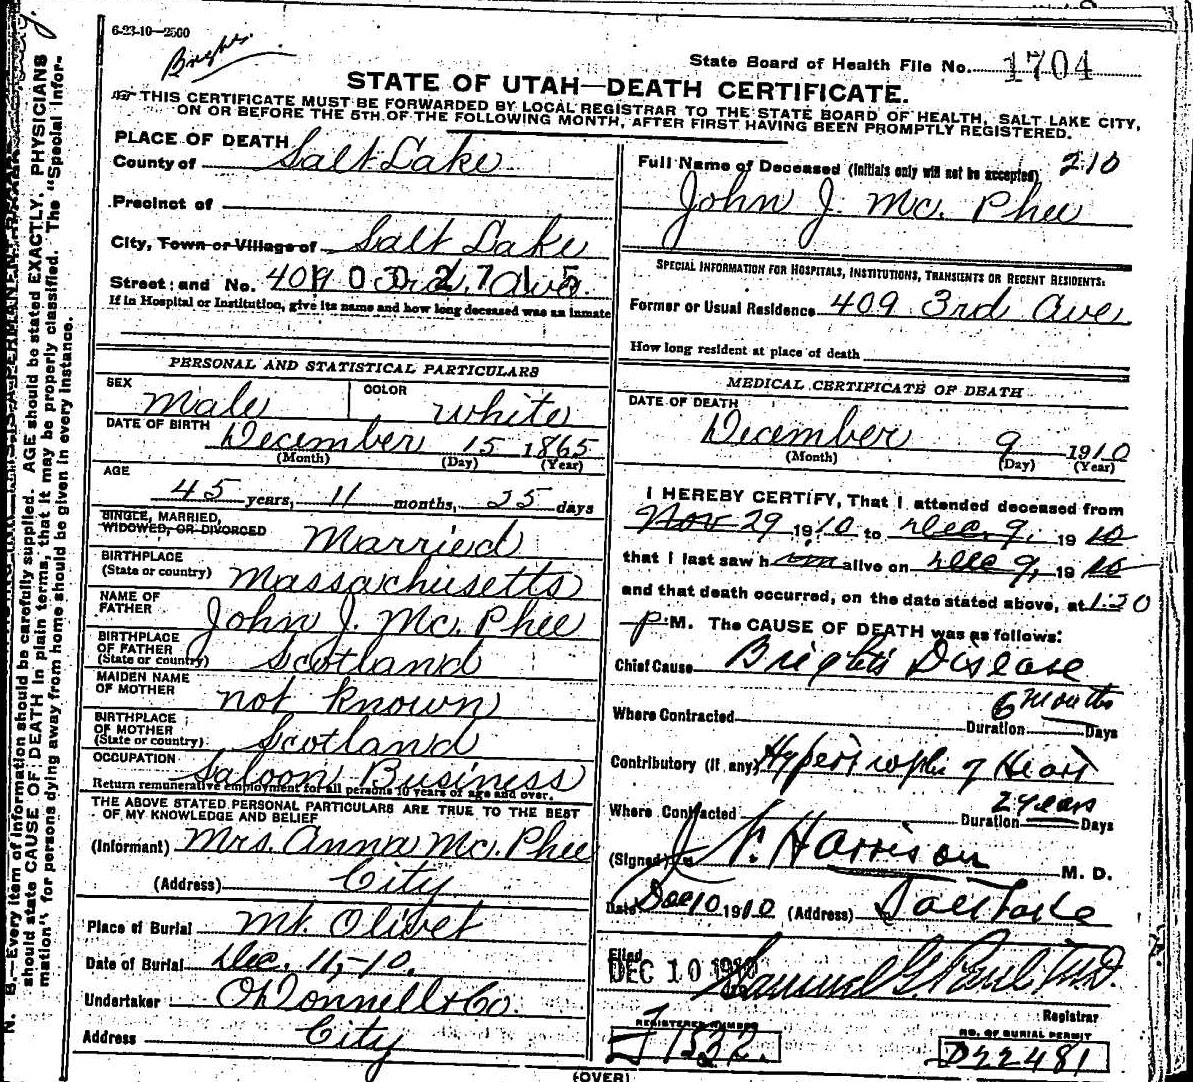 6-23-10—2500
Brights
State Board of Health File No. 1704
STATE OF UTAH—DEATH CERTIFICATE.
THIS CERTIFICATE MUST BE FORWARDED BY LOCAL REGISTRAR TO THE STATE BOARD OF HEALTH, SALT LAKE CITY,
ON OR BEFORE THE 5TH OF THE FOLLOWING MONTH, AFTER FIRST HAVING BEEN PROMPTLY REGISTERED.
PLACE OF DEATH
County of Salt Lake
Precinct of
City, Town or Village of Salt Lake
Street and No. 409 3rd Ave.
If in Hospital or Institution, give its name and how long deceased was an inmate
PERSONAL AND STATISTICAL PARTICULARS
SEX Male COLOR White
DATE OF BIRTH December 15 1865
(Month) (Day) (Year)
AGE
45 years, 11 months, 25 days
SINGLE, MARRIED,
WIDOWED, OR DIVORCED Married
BIRTHPLACE
(State or country) Massachusetts
NAME OF
FATHER John J. Mc. Phee
BIRTHPLACE
OF FATHER
(State or country) Scotland
MAIDEN NAME
OF MOTHER not known
BIRTHPLACE
OF MOTHER
(State or country) Scotland
OCCUPATION Saloon Business
Return remunerative employment for all persons 10 years of age and over.
THE ABOVE STATED PERSONAL PARTICULARS ARE TRUE TO THE BEST
OF MY KNOWLEDGE AND BELIEF
(Informant) Mrs. Anna Mc. Phee
(Address) City
Place of Burial Mt. Olivet
Date of Burial Dec. 11,-10.
Undertaker O'Donnell & Co.
Address City
Full Name of Deceased (Initials only will not be accepted) 210
John J. Mc. Phee
SPECIAL INFORMATION FOR HOSPITALS, INSTITUTIONS, TRANSIENTS OR RECENT RESIDENTS:
Former or Usual Residence 409 3rd Ave.
How long resident at place of death
MEDICAL CERTIFICATE OF DEATH
DATE OF DEATH
December 9 1910
(Month) (Day) (Year)
I HEREBY CERTIFY, That I attended deceased from
Nov 29 1910 to Dec. 9, 1910
that I last saw him alive on Dec 9, 1910
and that death occurred, on the date stated above, at 1:30
P.M. The CAUSE OF DEATH was as follows:
Chief Cause Brights Disease
6 Months
Where Contracted Duration Days
Contributory (if any) Hypertrophie of Heart
2 years
Where Contracted Duration Days
(Signed) Harrison M. D.
Date Dec 10 1910 (Address) Salt Lake
Filed
DEC 10 1910 Samuel G. Paul M.D.
Registrar
REGISTERED NUMBER
1532.
NO. OF BURIAL PERMIT
D22481
(OVER)
N. B.—Every item of information should be carefully supplied. AGE should be stated EXACTLY. PHYSICIANS
should state CAUSE OF DEATH in plain terms, that it may be properly classified. The "Special Infor-
mation" for persons dying away from home should be given in every instance.